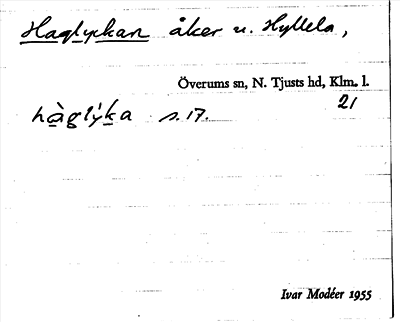 Haglyckan åker u. Hyllela,
Överums sn, N. Tjusts hd, Klm. l.
21
hàglýka s. 17.
Ivar Modéer 1955